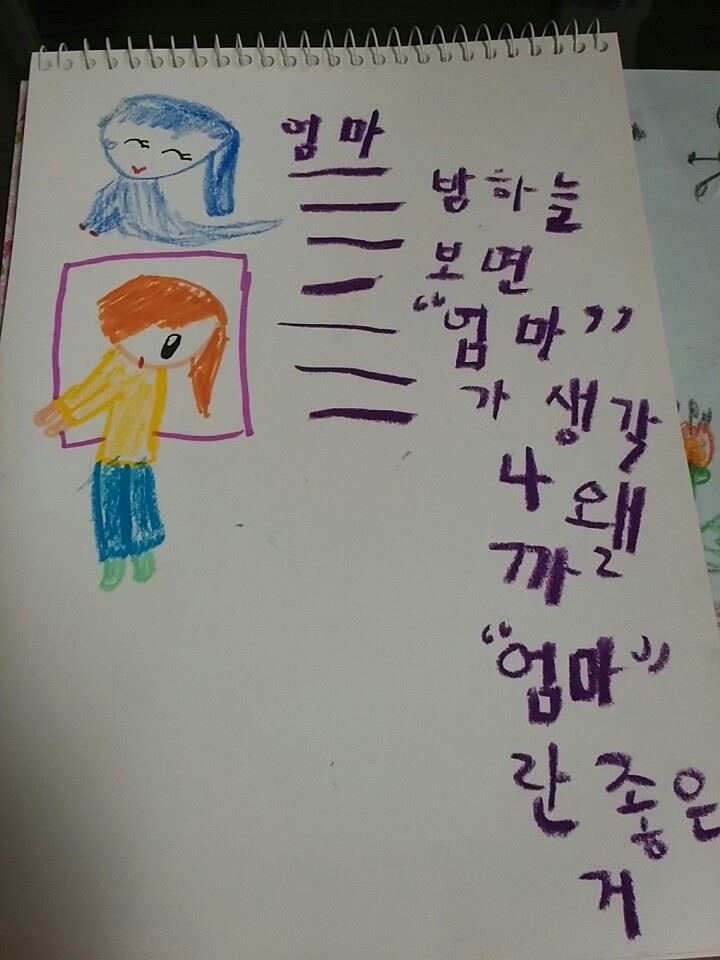 엄마
밤하늘
보면
“엄마”
가 생각
나 왤
까
“엄마”
란 좋은
거